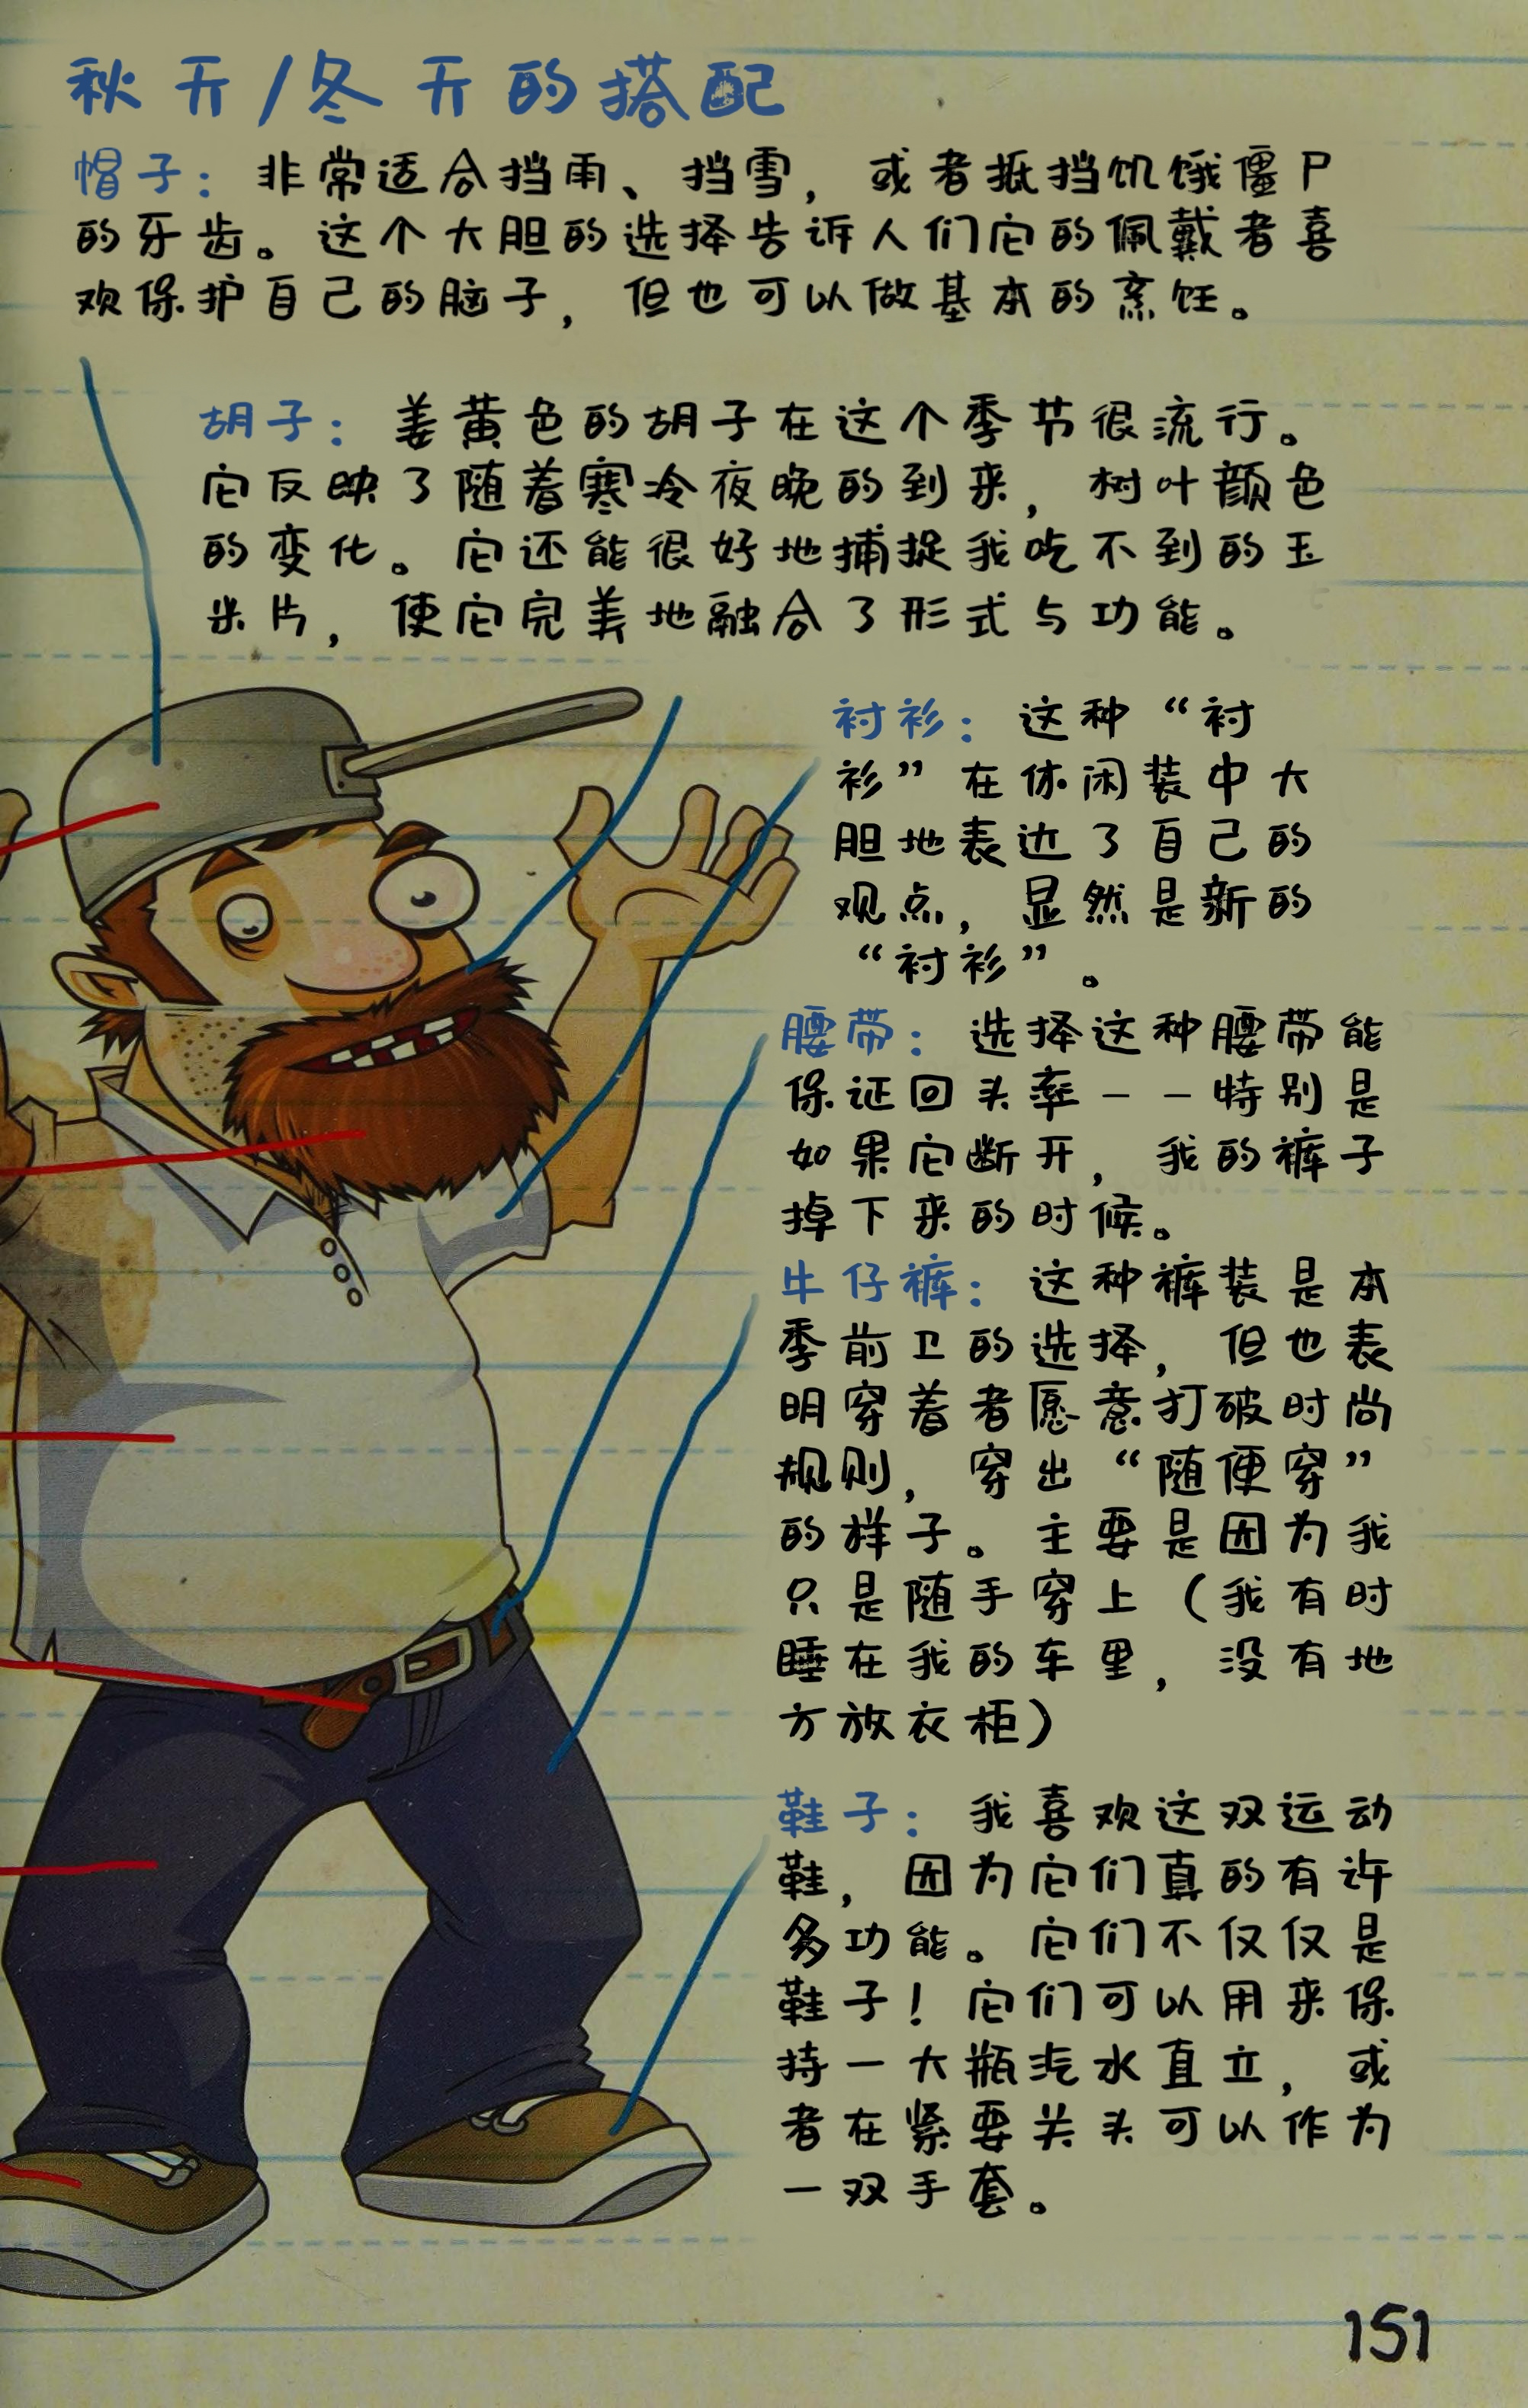 秋天/冬天的搭配
帽子：非常适合挡雨、挡雪，或者抵挡饥饿僵尸
的牙齿。这个大胆的选择告诉人们它的佩戴者喜
欢保护自己的脑子，但也可以做基本的烹饪。
胡子：姜黄色的胡子在这个季节很流行。
它反映了随着寒冷夜晚的到来，树叶颜色
的变化。它还能很好地捕捉我吃不到的玉
米片，使它完美地融合了形式与功能。
衬衫：这种“衬
衫”在休闲装中大
胆地表达了自己的
观点，显然是新的
“衬衫”。
腰带：选择这种腰带能
保证回头率--特别是
如果它断开，我的裤子
掉下来的时候。
牛仔裤：这种裤装是本
季前卫的选择，但也表
明穿着者愿意打破时尚
规则，穿出“随便穿”
的样子。主要是因为我
只是随手穿上（我有时
睡在我的车里，没有地
方放衣柜）
鞋子：我喜欢这双运动
鞋，因为它们真的有许
多功能。它们不仅仅是
鞋子！它们可以用来保
持一大瓶汽水直立，或
者在紧要关头可以作为
一双手套。
151